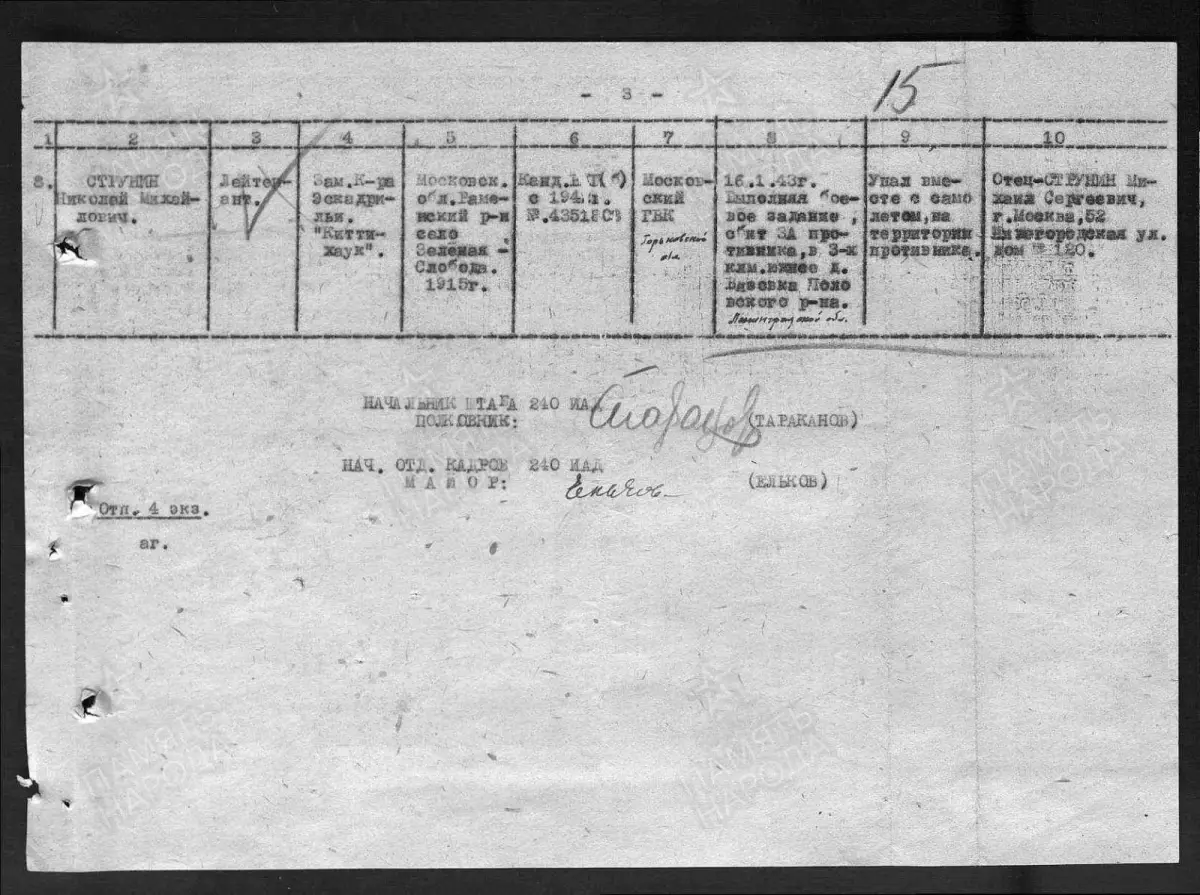 - 3 -
15
1 2 3 4 5 6 7 8 9 10
8.
СТРУНИН
Николай Михай-
лович.
Лейтен-
ант.
Зам.К-ра
Эскадри-
льи.
"Китти-
хаук".
Московск.
обл.Раме-
нский р-н
село
Зеленая -
Слобода.
1915г.
Канд.ВКП(б)
с 194
№.43518
Москов-
ский
ГВК
Горьковской
обл
16.1.43г.
Выполняя бое-
вое задание,
сбит ЗА про-
тивника, в 3-х
клм.южнее д.
Вязовка Поло
вского р-на.
Ленинградской обл.
Упал вме-
сте с само
летом, на
территории
противника.
Отец-СТРУНИН Ми-
хаил Сергеевич,
г.Москва,52
Нижегородская ул.
дом № 120.
НАЧАЛЬНИК ШТАБА 240 ИАД
ПОЛКОВНИК:
(ТАРАКАНОВ)
НАЧ. ОТД. КАДРОВ 240 ИАД
МАЙОР:
(ЕЛЬКОВ)
Отп. 4 экз.
аг.
ПАМЯТЬ
НАРОДА